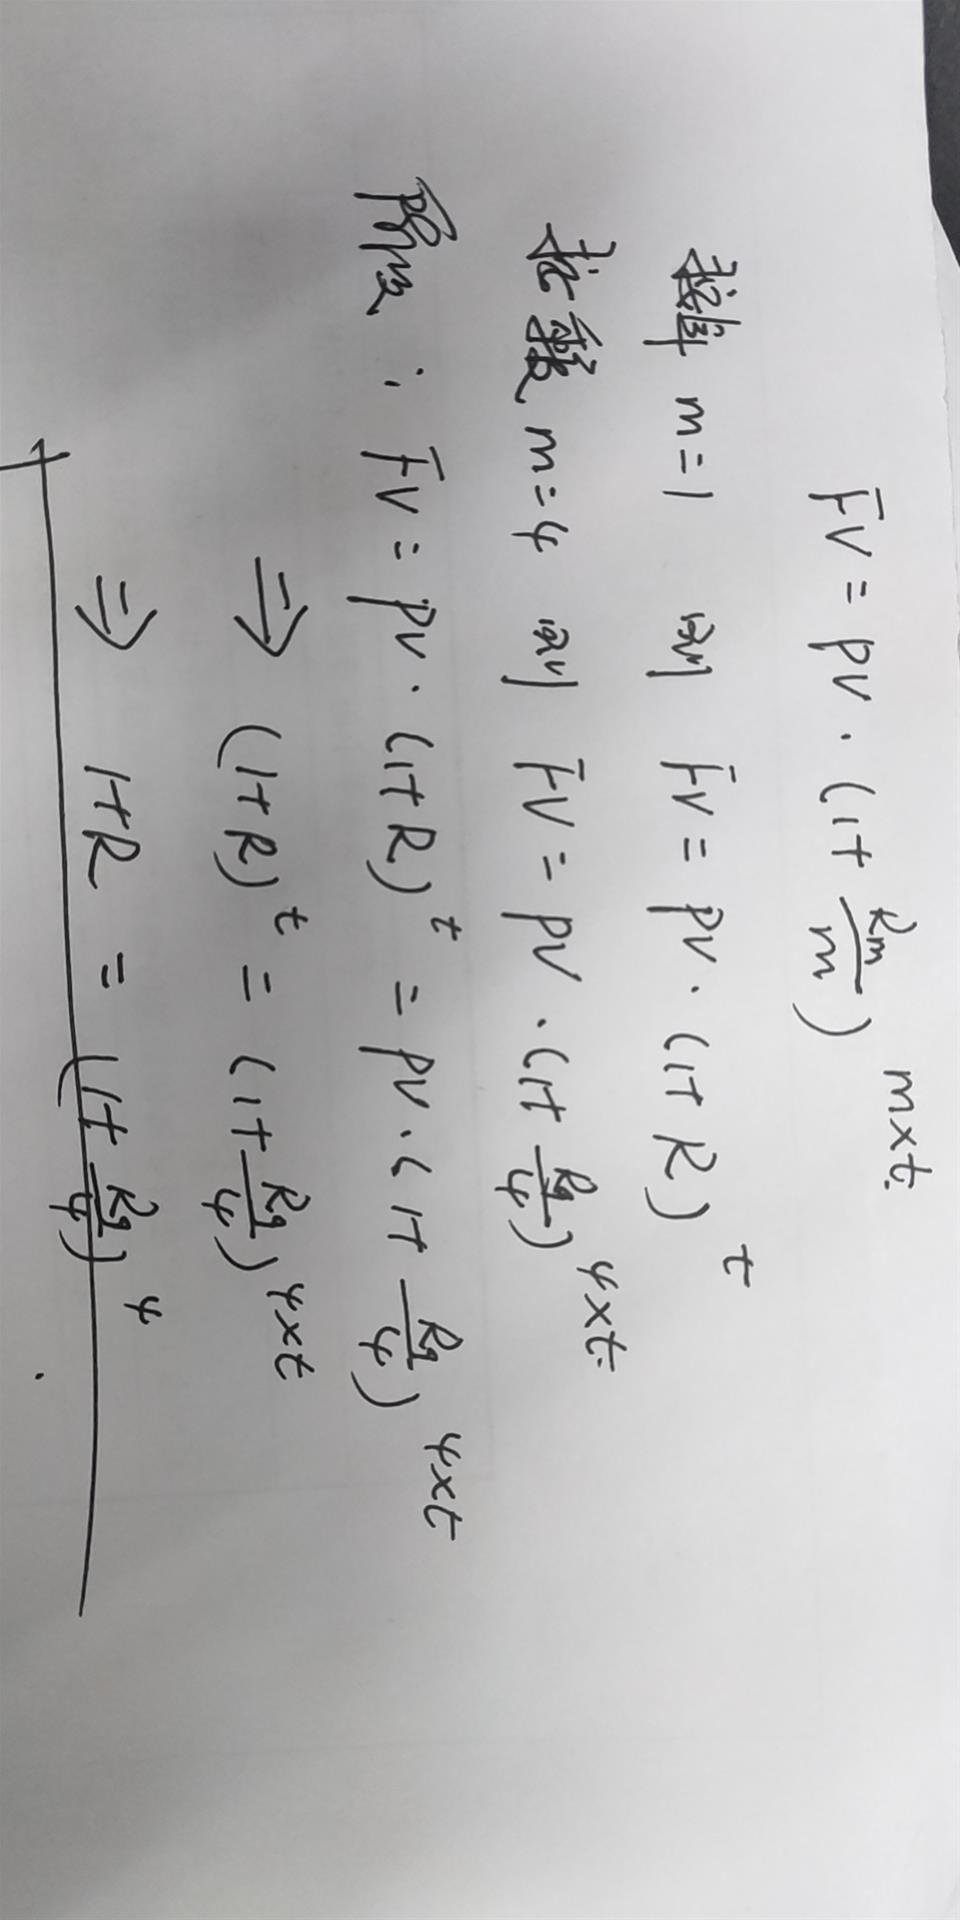 FV = PV · (1+ Rm/m)^m×t.
按年 m=1 则 FV = PV · (1+R)^t
按季度 m=4 则 FV = PV · (1+ Rq/4)^4×t.
所以: FV = PV · (1+R)^t = PV · (1+ Rq/4)^4×t
⇒ (1+R)^t = (1+ Rq/4)^4×t
⇒ 1+R = (1+ Rq/4)^4